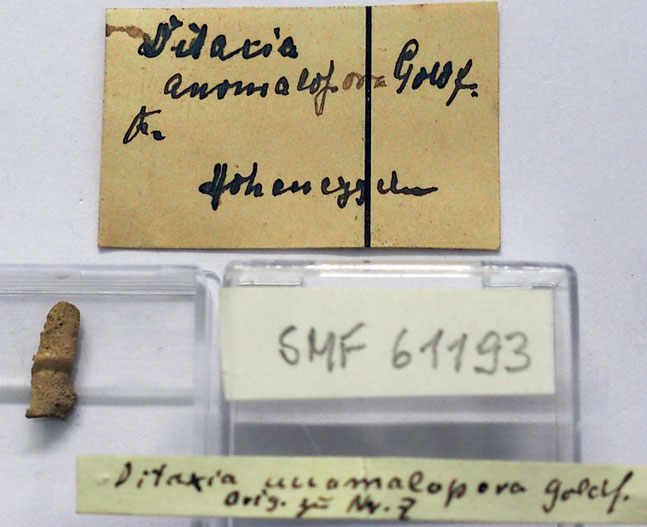 Ditaxia
anomalopora Goldf.
Hoheneggelsen
SMF 61193
Ditaxia anomalopora Goldf.
Orig. zu Nr. 7